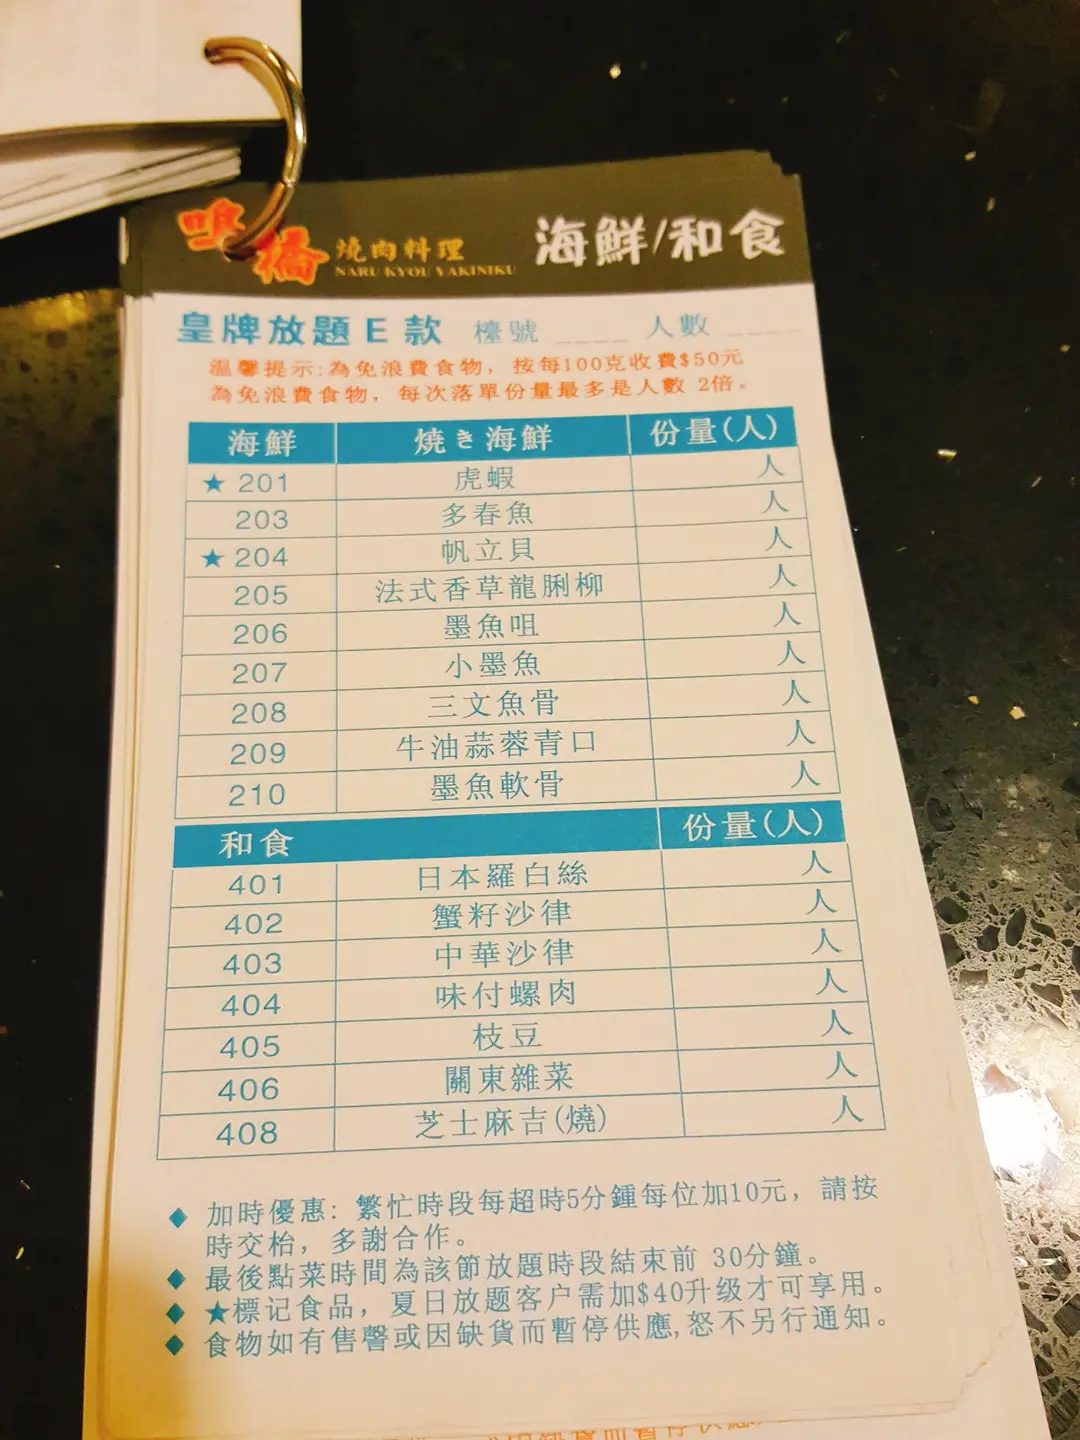 鳴橋 燒肉料理 海鮮/和食
NARU KYOU YAKINIKU
皇牌放題E款 檯號____ 人數____
温馨提示:為免浪費食物，按每100克收費$50元
為免浪費食物，每次落單份量最多是人數 2倍。
海鮮 焼き海鮮 份量(人)
★ 201 虎蝦 人
203 多春魚 人
★ 204 帆立貝 人
205 法式香草龍脷柳 人
206 墨魚咀 人
207 小墨魚 人
208 三文魚骨 人
209 牛油蒜蓉青口 人
210 墨魚軟骨 人
和食 份量(人)
401 日本羅白絲 人
402 蟹籽沙律 人
403 中華沙律 人
404 味付螺肉 人
405 枝豆 人
406 關東雜菜 人
408 芝士麻吉(燒) 人
◆ 加時優惠: 繁忙時段每超時5分鍾每位加10元，請按
時交枱，多謝合作。
◆ 最後點菜時間為該節放題時段結束前 30分鐘。
◆ ★標记食品，夏日放题客户需加$40升级才可享用。
◆ 食物如有售罄或因缺貨而暫停供應,怒不另行通知。